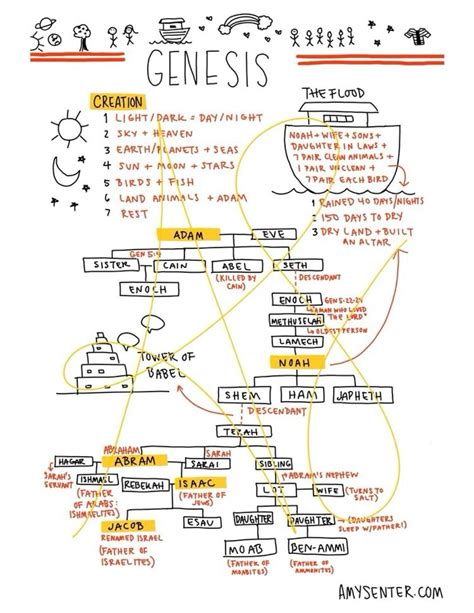 GENESIS
CREATION
1 LIGHT/DARK = DAY/NIGHT
2 SKY + HEAVEN
3 EARTH/PLANETS + SEAS
4 SUN + MOON + STARS
5 BIRDS + FISH
6 LAND ANIMALS + ADAM
7 REST
THE FLOOD
NOAH + WIFE + SONS +
DAUGHTER IN LAWS +
7 PAIR CLEAN ANIMALS +
1 PAIR UNCLEAN +
7 PAIR EACH BIRD
1 RAINED 40 DAYS/NIGHTS
2 150 DAYS TO DRY
3 DRY LAND + BUILT
AN ALTAR
ADAM
EVE
GEN 5:4
SISTER
CAIN
ABEL
(KILLED BY
CAIN)
SETH
ENOCH
DESCENDANT
ENOCH
GEN 5:22-24
A MAN WHO LIVED
"THE LORD"
METHUSELAH
OLDEST PERSON
LAMECH
NOAH
TOWER OF
BABEL
SHEM
HAM
JAPHETH
DESCENDANT
TERAH
ABRAHAM
SARAH
HAGAR
ABRAM
SARAI
SIBLING
SARAH'S
SERVANT
ISHMAEL
(FATHER
OF ARABS:
ISHMAELITES)
REBEKAH
ISAAC
(FATHER OF
JEWS)
ABRAM'S NEPHEW
LOT
WIFE
(TURNS TO
SALT)
JACOB
RENAMED ISRAEL
(FATHER OF
ISRAELITES)
ESAU
DAUGHTER
DAUGHTER
(DAUGHTERS
SLEEP W/FATHER!)
MOAB
(FATHER OF
MOABITES)
BEN-AMMI
(FATHER OF
AMMONITES)
AMYSENTER.COM